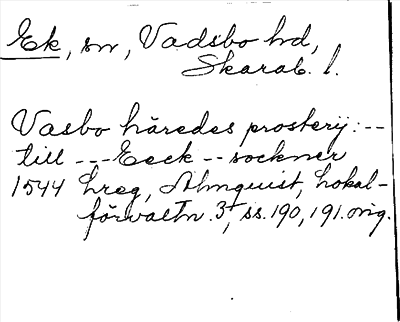 Ek, sn, Vadsbo hd,
Skarab. l.
Vasbo häredes prosterij: --
till --- Eeck -- sockner
1544 Lreg, Almquist, Lokal-
förvaltn. 3, ss. 190, 191. orig.